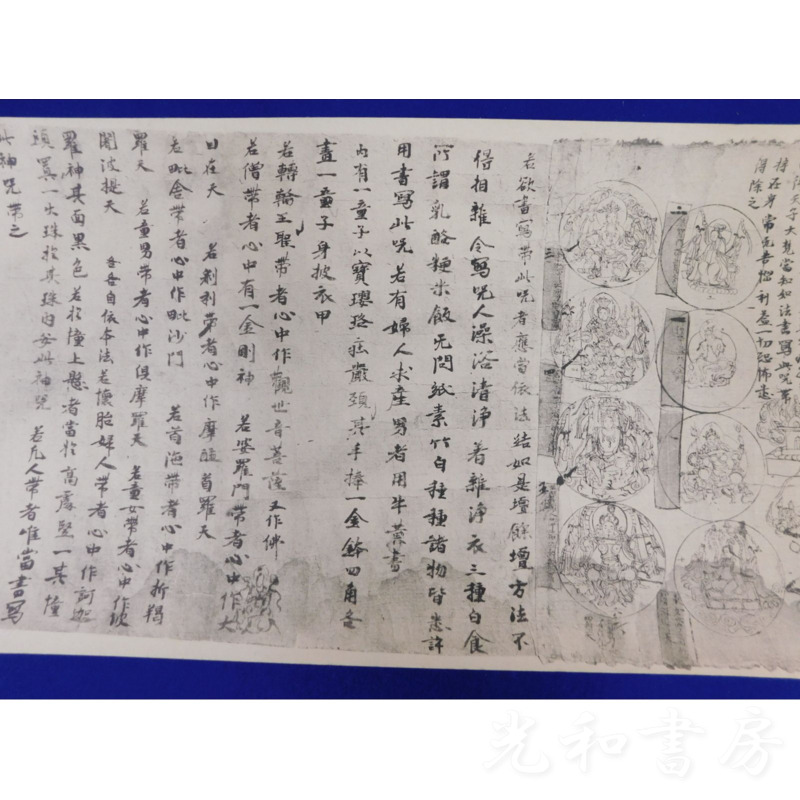 持在身常見吾惱利益一切恐怖
得除之
若欲書寫帶此咒者應當依法結如是壇餘壇方法不
得相雜令寫咒人澡浴清淨著雜淨衣三種白食
所謂乳酪粳米飯无問紙素竹白種種諸物皆悉許
用書寫此咒若有婦人求產男者用牛黃書
內有一童子以寶瓔珞莊嚴頸其手捧一金鉢四角各
畫一童子身披衣甲
若轉輪王聖帶者心中作觀世音菩薩又作佛
若僧帶者心中有一金剛神 若婆羅門帶者心中作大
自在天 若剎利帶者心中作摩醯首羅天
若毗舍帶者心中作毗沙門 若首陁帶者心中作斫羯
羅天 若童男帶者心中作俱摩羅天 若童女帶者心中作波
闍波提天 各各自依本法若懷胎婦人帶者心中作訶迦
羅神其面黑色若於幢上懸者當於高處竪一其幢
頭置一火珠於其珠內安此神咒 若凡人帶者唯當書寫
此神咒帶之
光和書房